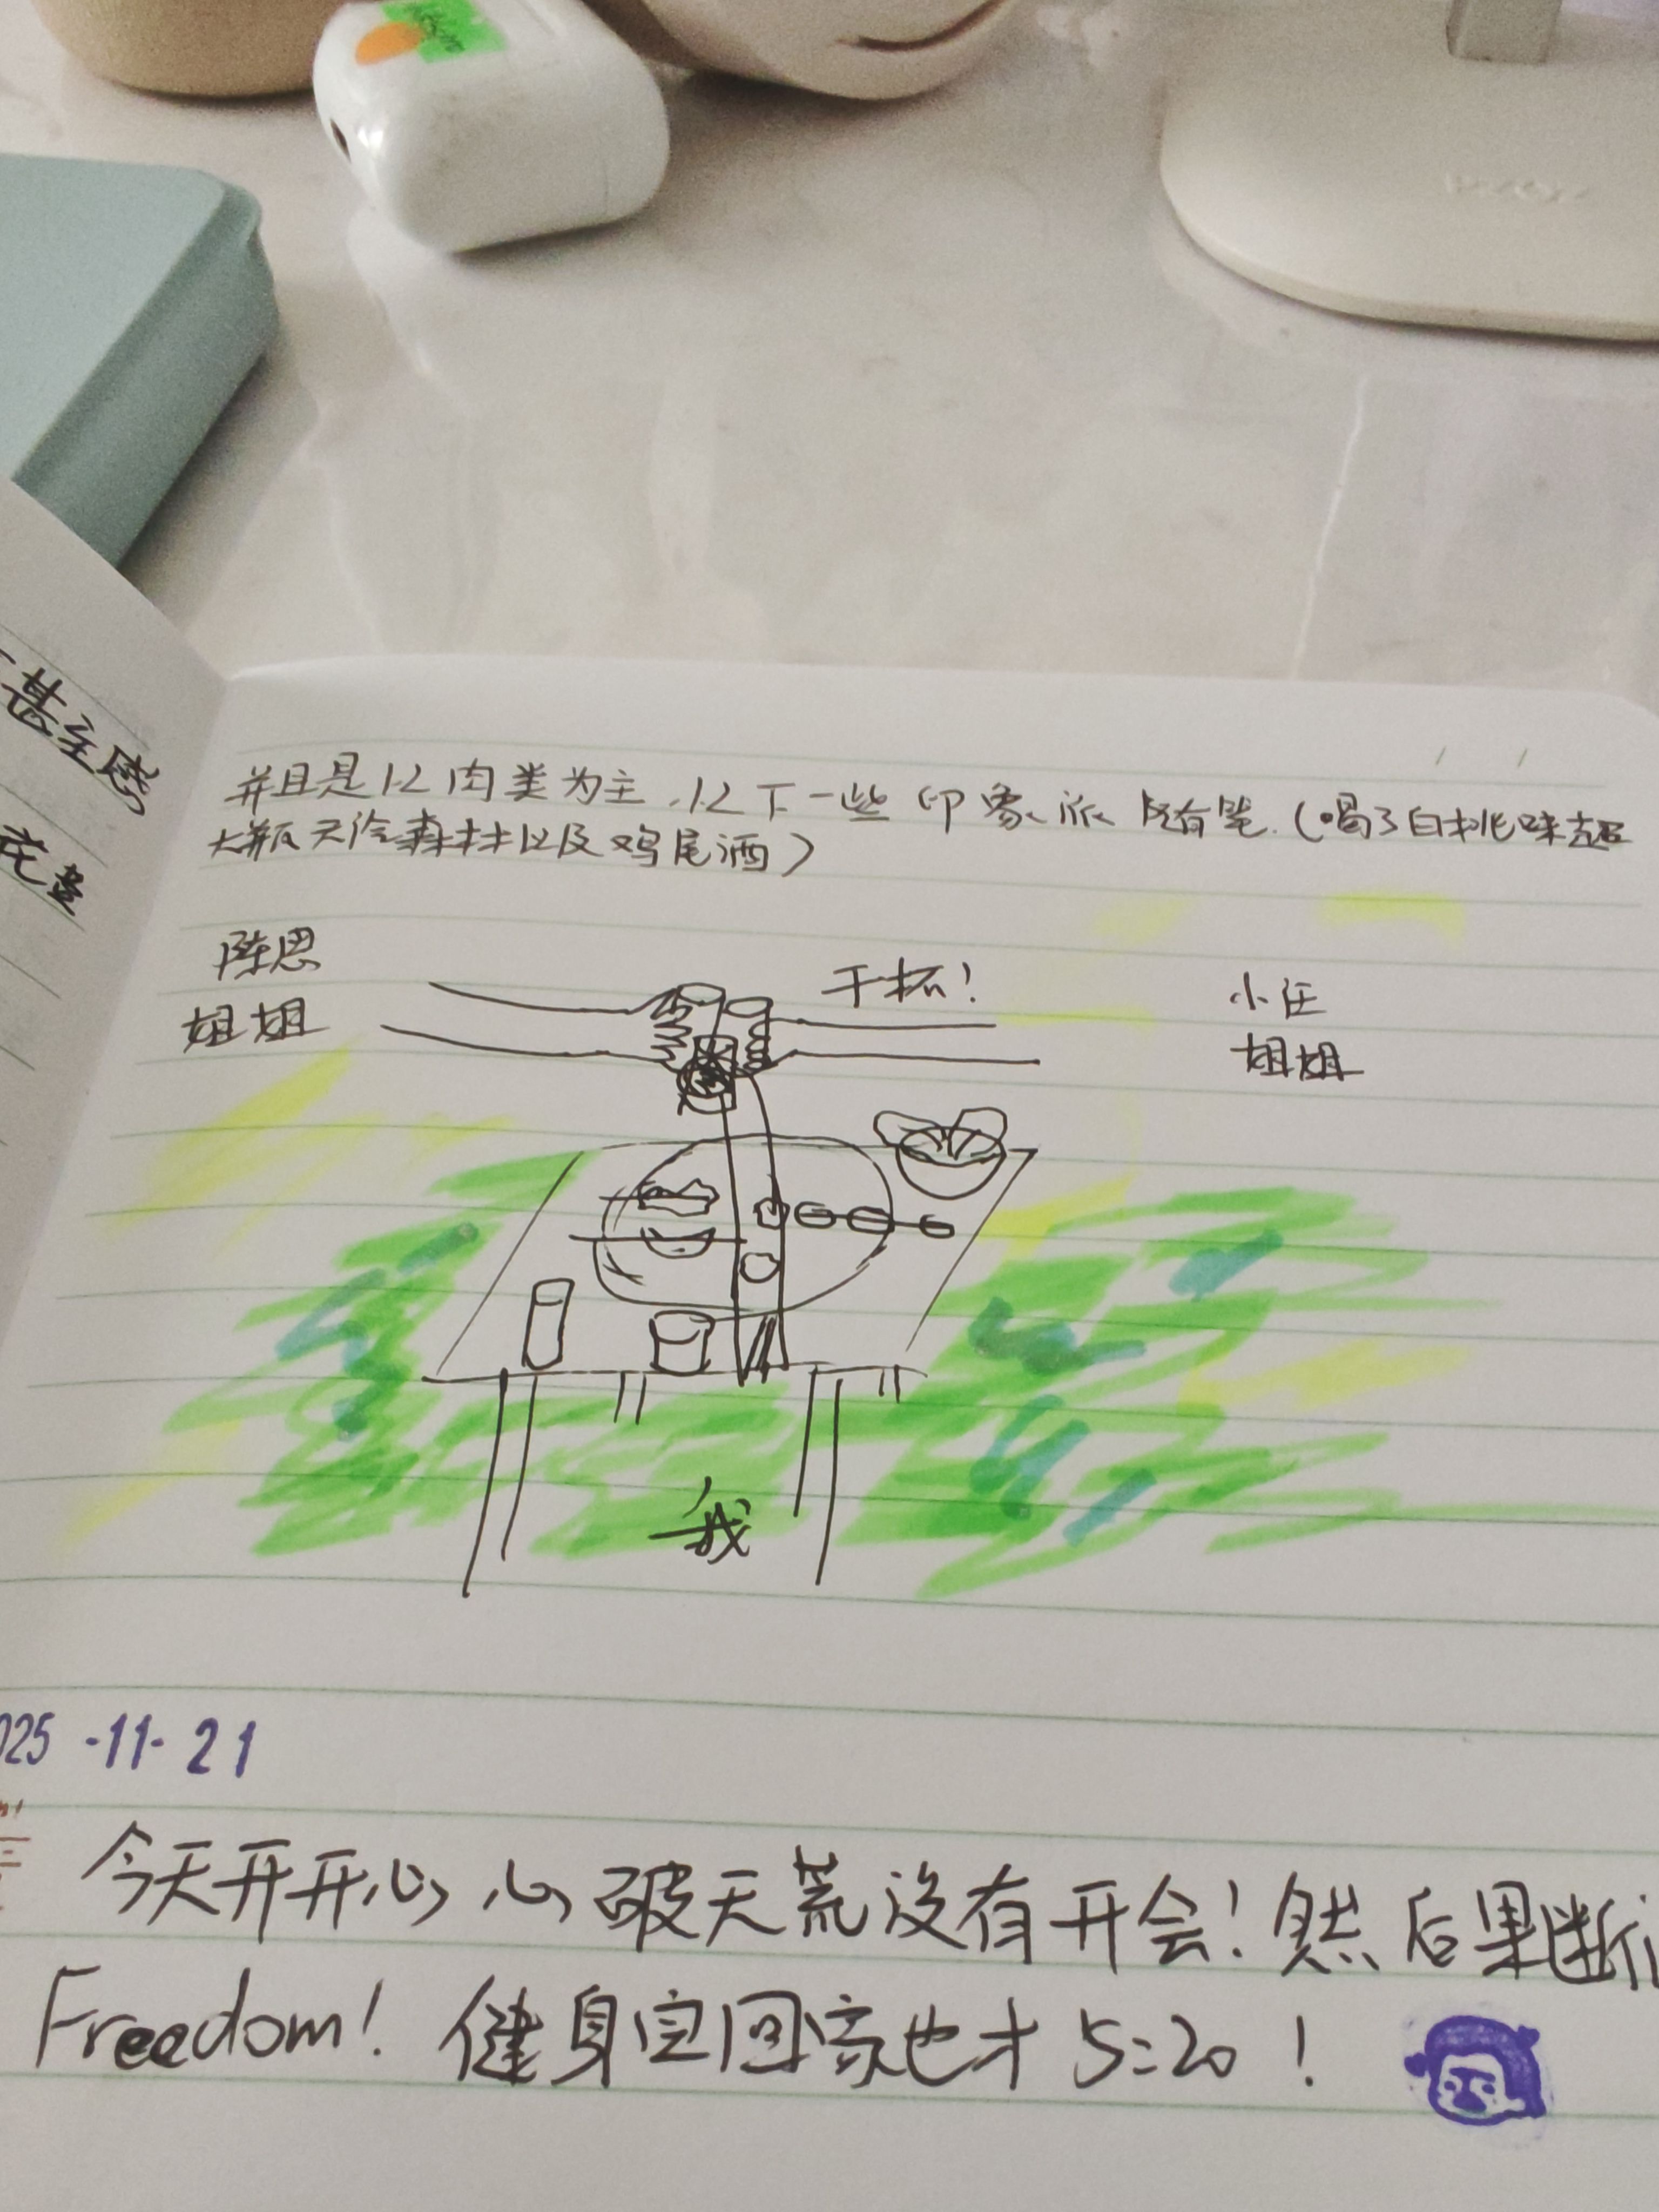 甚至感
花童
并且是以肉类为主，以下一些印象派随笔。（喝了白桃味超
大瓶元气森林以及鸡尾酒）
陈思
姐姐
干杯！
小任
姐姐
我
025-11-21
今天开开心心破天荒没有开会！然后果断
Freedom！健身完回家也才5:20！